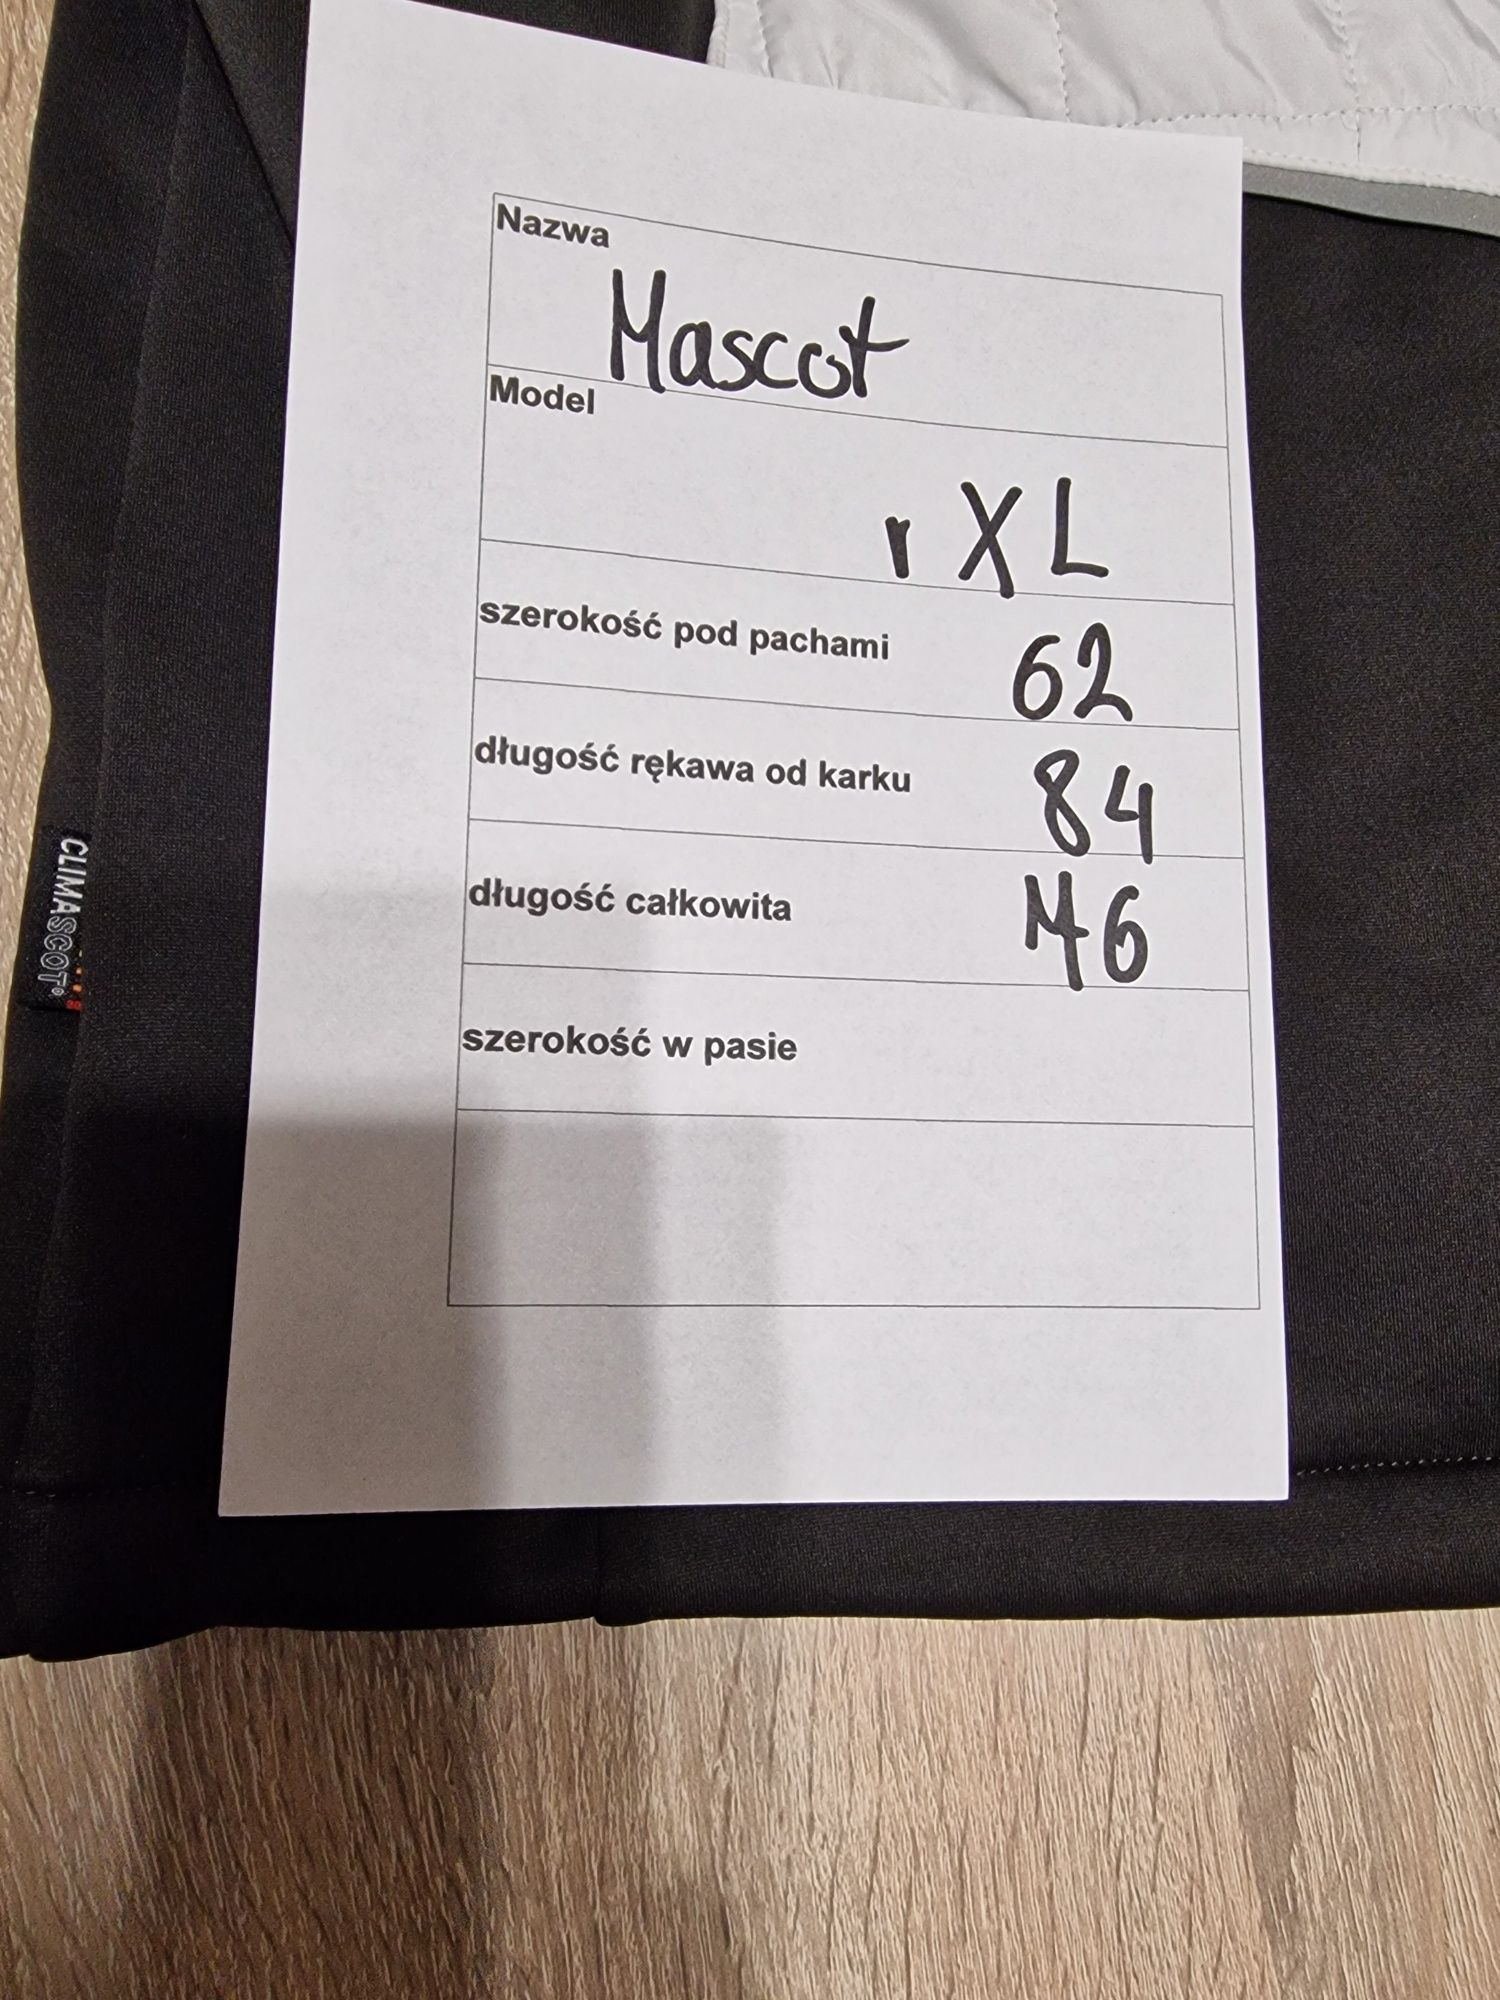 Nazwa
Mascot
Model
r XL
szerokość pod pachami 62
długość rękawa od karku 84
długość całkowita 76
szerokość w pasie
CLIMASCOT®